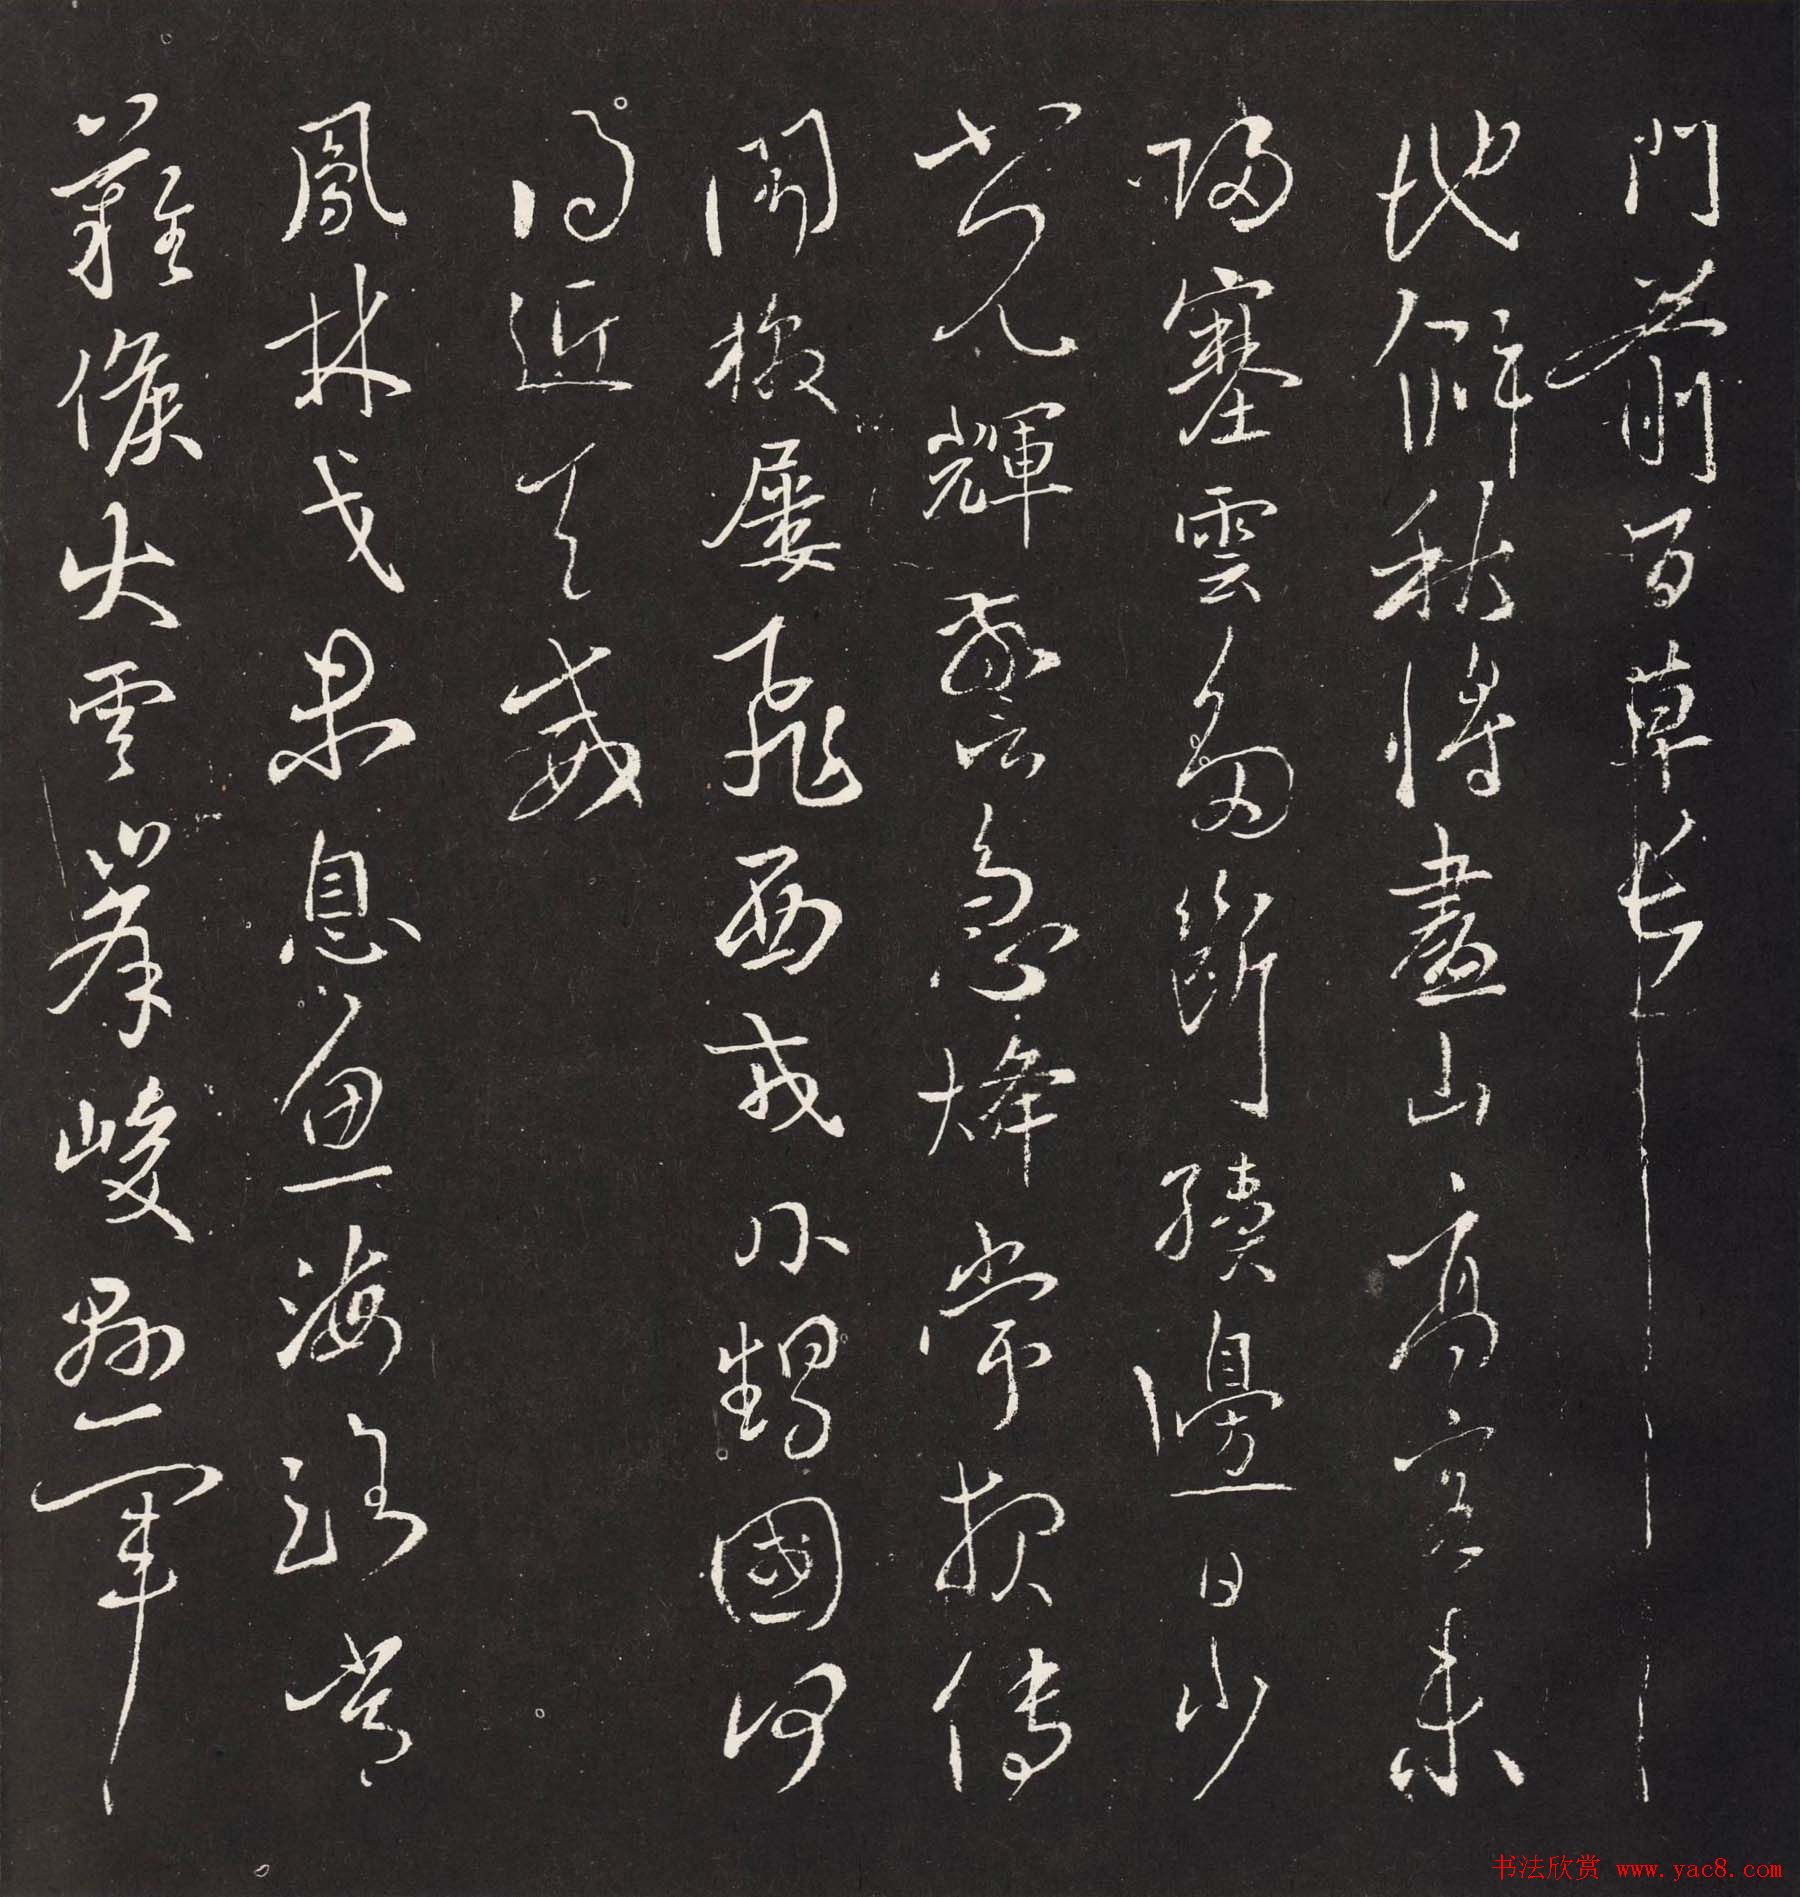 門前百草長
地僻秋將盡山高客未
歸塞雲多斷續邊日少
光輝警急烽常報傳
聞檄屢飛西戎外甥國何
得近天威
鳳林戈未息魚海路常
難候火雲峯峻懸軍
书法欣赏 www.yac8.com